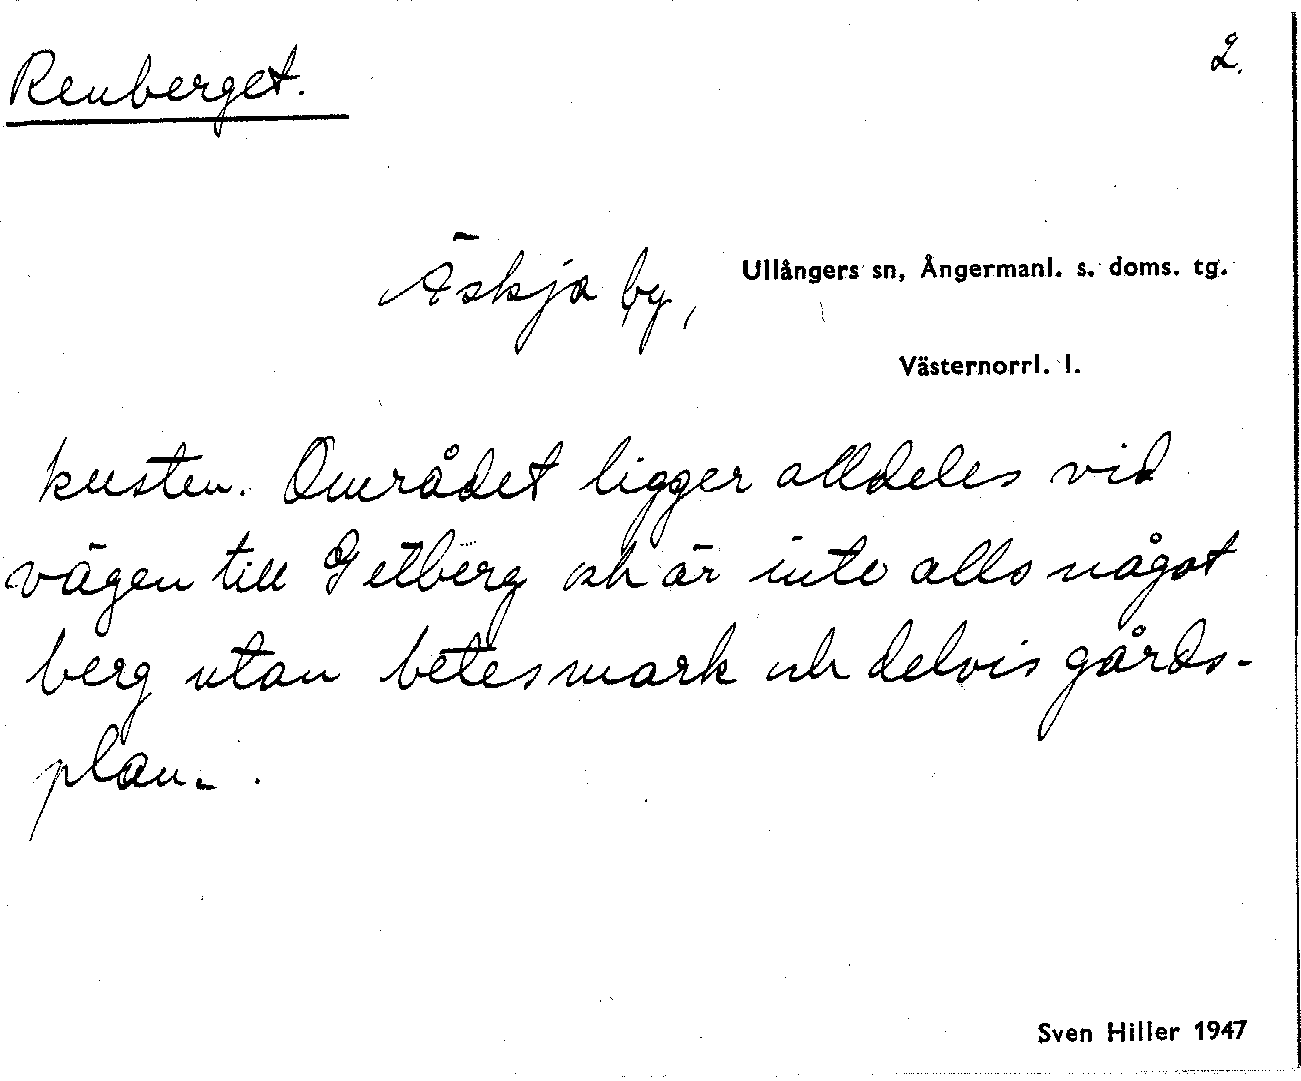 Renberget.
2.
Äskja by, Ullångers sn, Ångermanl. s. doms. tg.
Västernorrl. l.
kusten. Området ligger alldeles vid
vägen till Getberg och är inte alls något
berg utan betesmark och delvis gårds-
plan.
Sven Hiller 1947